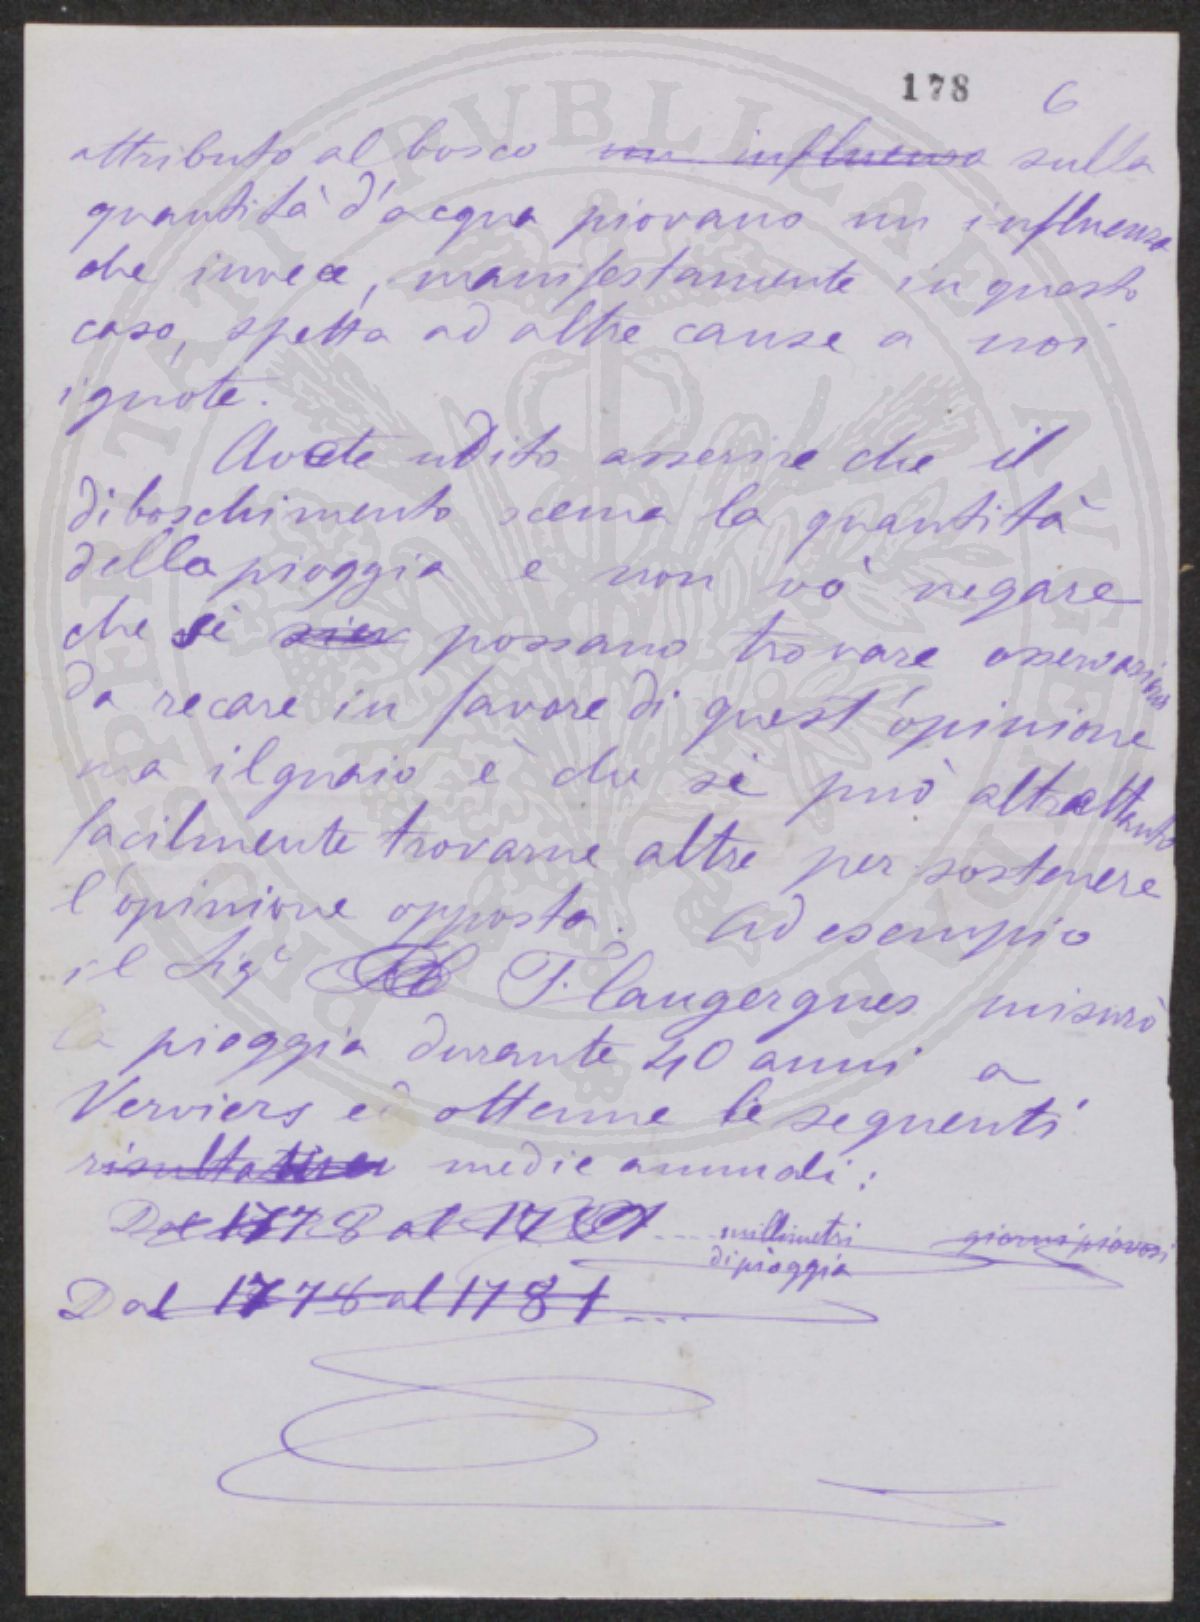 178 6
attributo al bosco un influenza sulla
quantità d'acqua piovano un influenza
che invece, manifestamente in questo
caso, spetta ad altre cause a noi
ignote.
Avete udito asserire che il
diboschimento scema la quantità
della pioggia e non vò negare
che si possano trovare osservazioni
da recare in favore di quest'opinione
ma il guaio è che si può altrettanto
facilmente trovarne altre per sostenere
l'opinione opposta. Ad esempio
il Sigr Flaugergues misurò
la pioggia durante 40 anni a
Verviers ed ottenne le seguenti
medie annuali:
Dal 1778 al 1781 .... millimetri giorni piovosi
di pioggia
Dal 1778 al 1781 ....